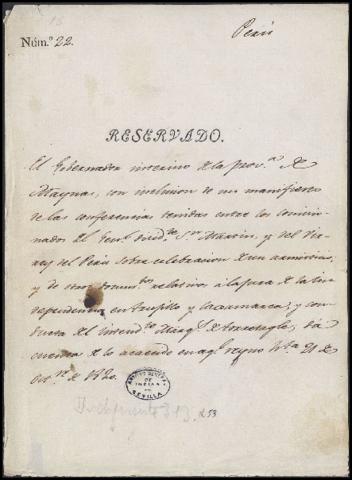 Perú
Núm.º 22.
RESERVADO.
El Gobernador interino de la prov.ª de
Maynas, con inclusion de un manifiesto
de las conferencias tenidas entre los comisio-
nados del Gen.l S.n Martin, y del Vir-
rey del Perú sobre celebracion de un armisticio,
y de otros docum.tos relativos á la jura de la in-
dependencia en Truxillo y Caxamarca, y con-
ducta del Intend.te Marq.s de Torretagle, dá
cuenta de lo acaecido en aq.l reyno h.ta 21 de
de 1820.
ARCHIVO GENERAL
DE
INDIAS
SEVILLA
313